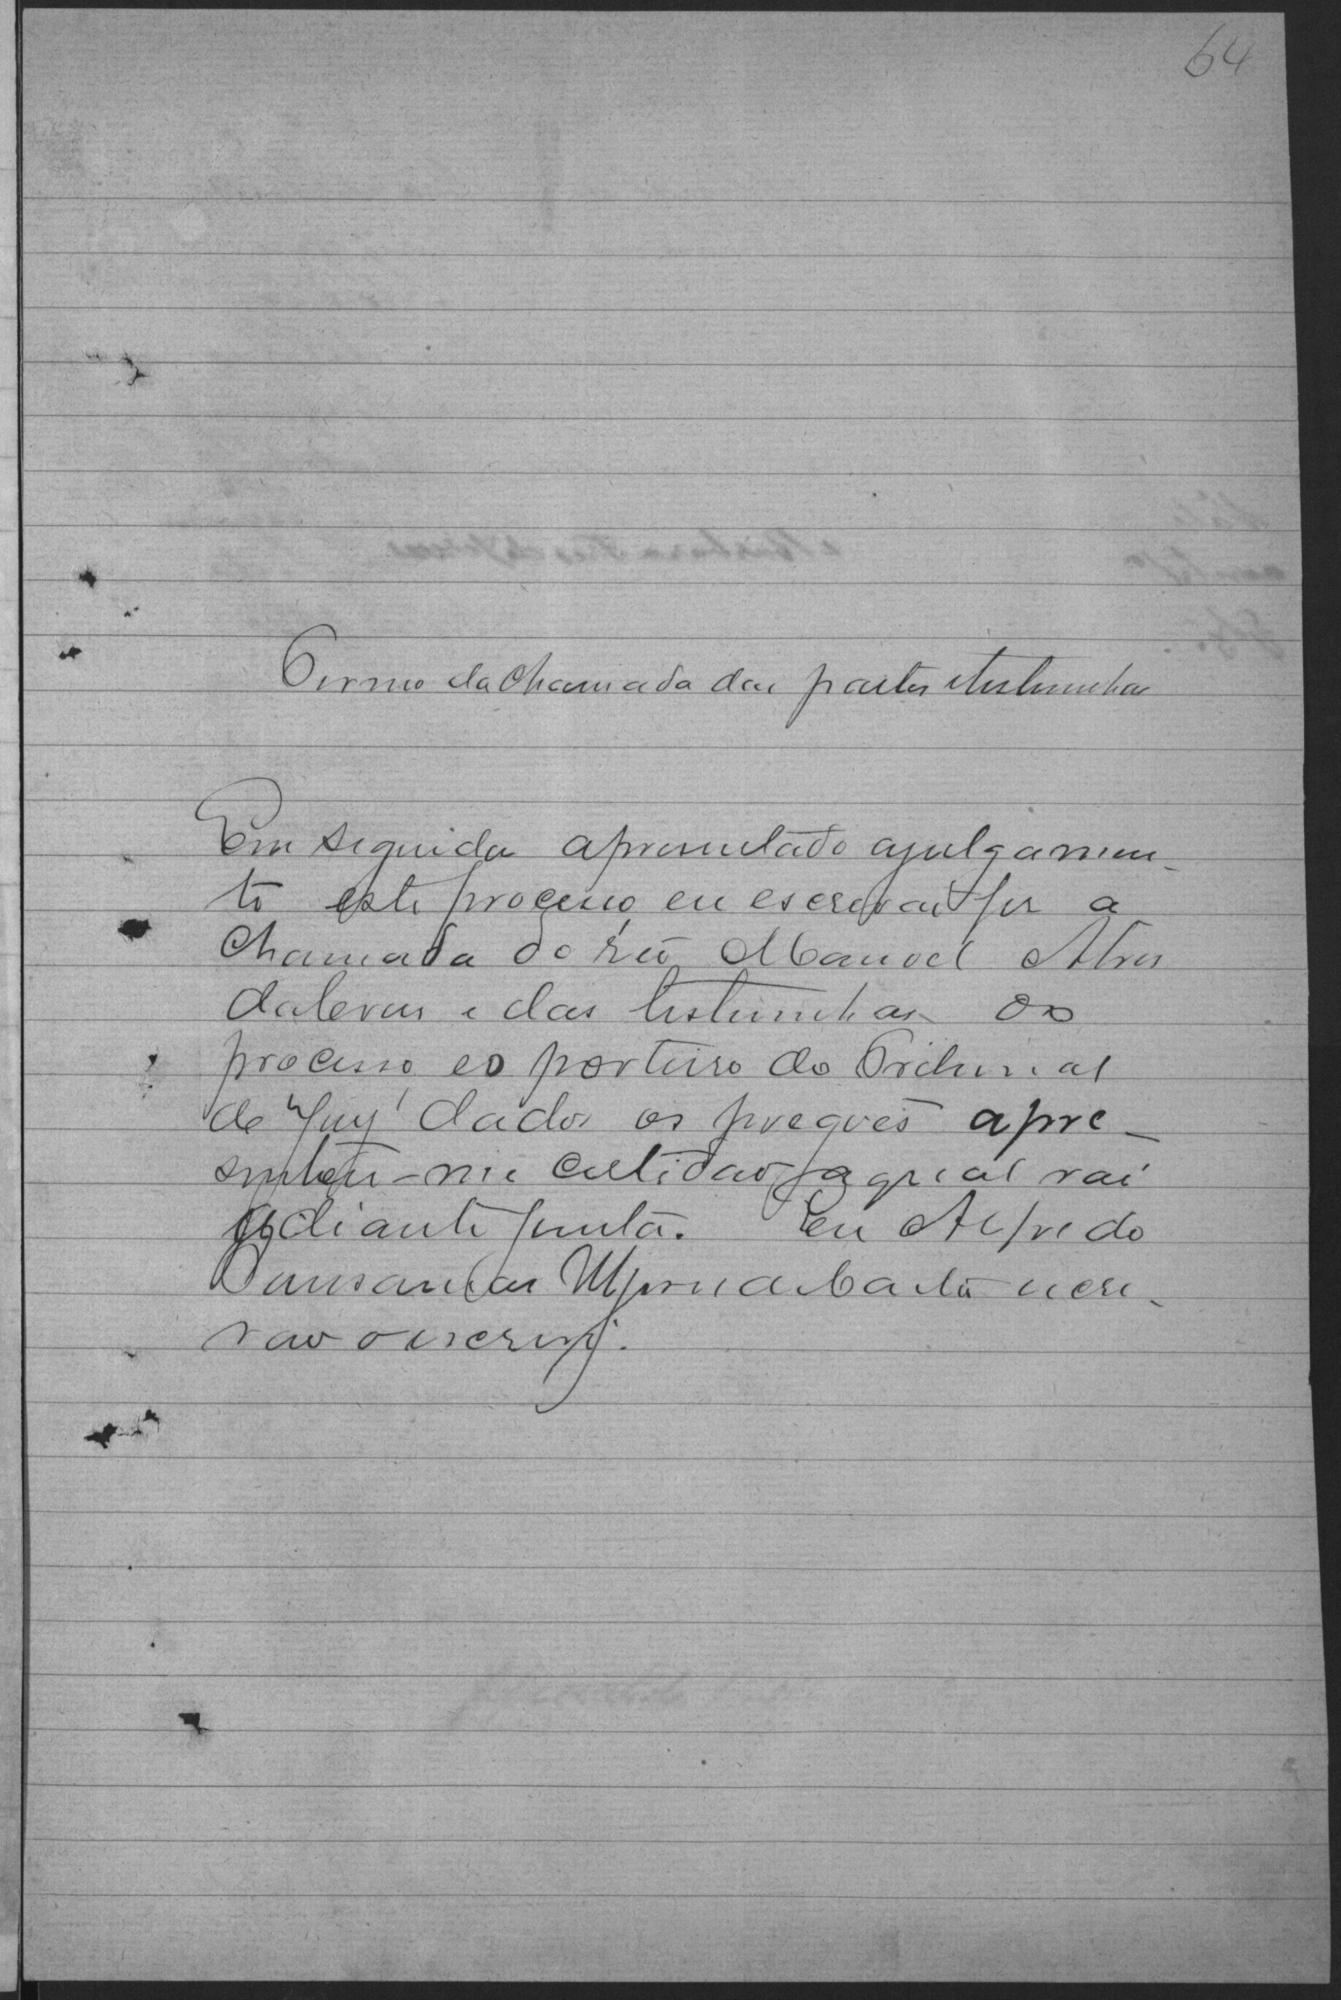 64
Termo da chamada das partes e testemunhas
Em seguida apresentado a julgamen-
to este processo, eu escrivão fiz a
chamada do réo Manoel Alves
e das testemunhas do
processo e o porteiro do Tribunal
de Jury dados os pregoes apre-
sentou-me certidão, a qual vai
adiante junta. Eu Alfredo
escri-
vão o escrevi.